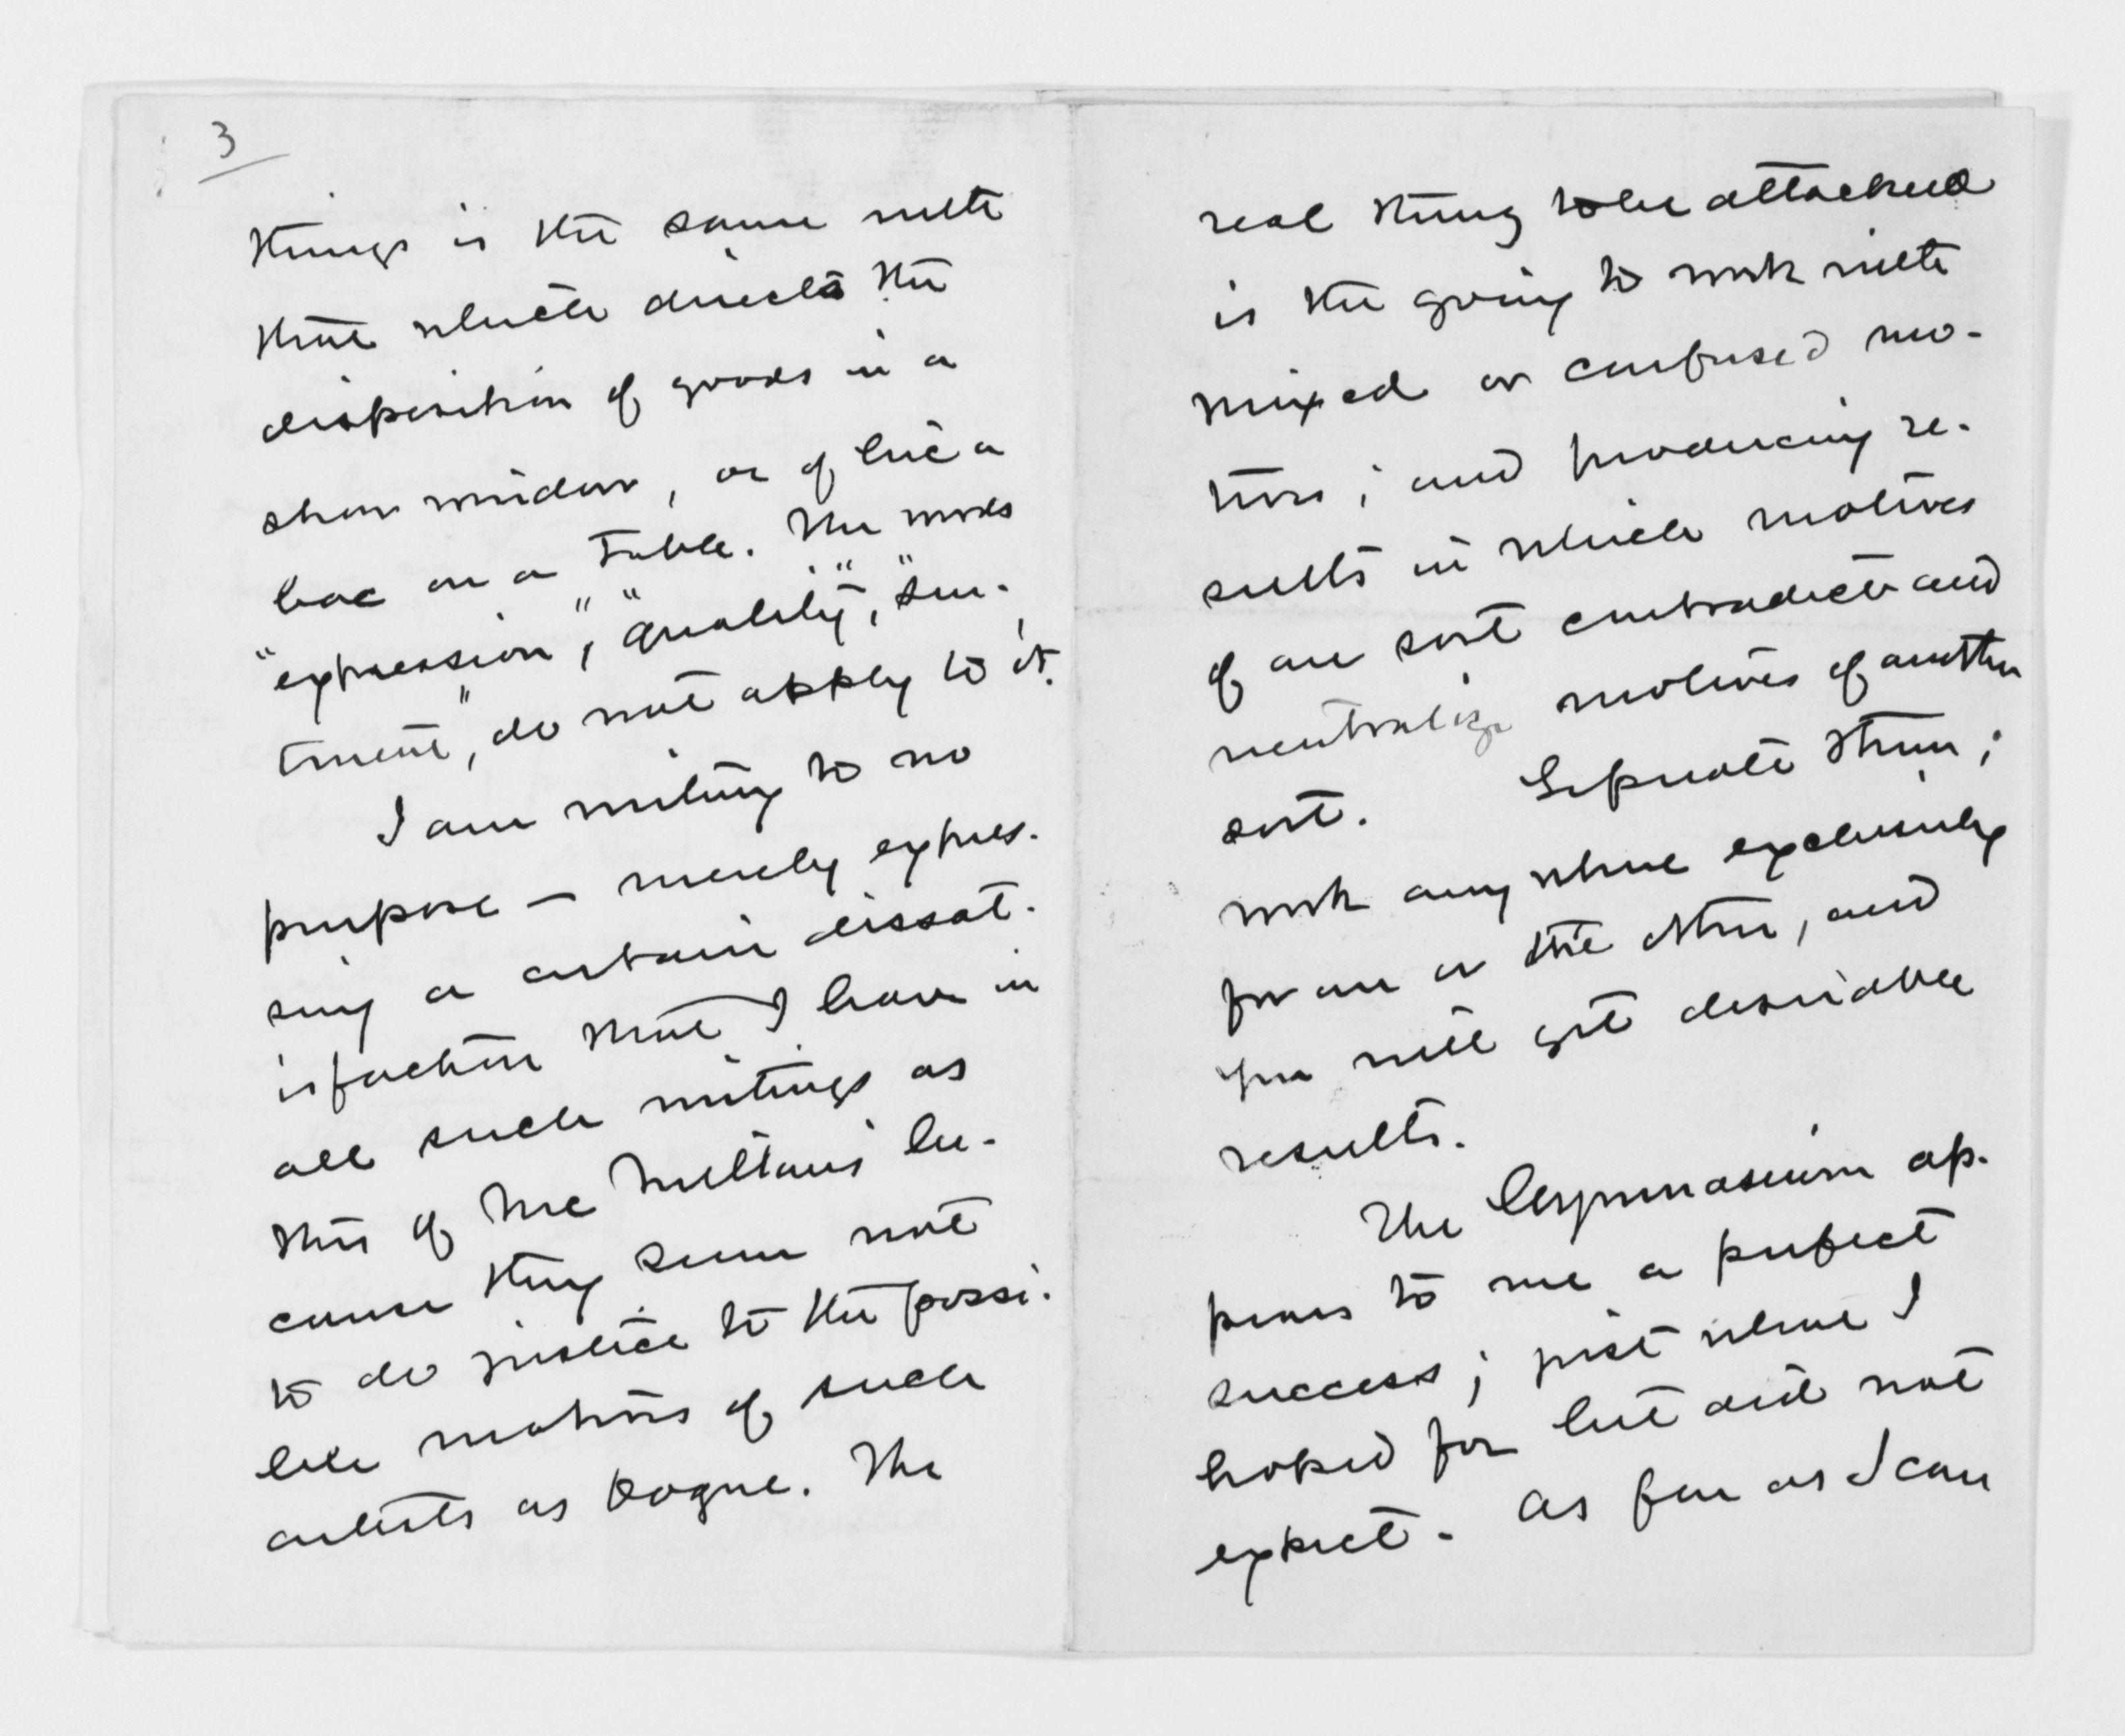 3
things is the same with
that which directs the
disposition of goods in a
show window, or of bric a
brac on a table. The words
"expression", "quality", "sen-
timent", do not apply to it.
I am writing to no
purpose — merely expres-
sing a certain dissat-
isfaction that I have in
all such writings as
this of McMillan's be-
cause they seem not
to do justice to the possi-
ble motives of such
artists as Bogue. The
real thing to be attacked
is the going to work with
mixed or confused mo-
tives; and producing re-
sults in which motives
of one sort contradict and
neutralize motives of another
sort. Separate them;
work any where exclusively
for one or the other, and
you will get desirable
results.
The Gymnasium ap-
pears to me a perfect
success; just what I
hoped for but did not
expect. As far as I can